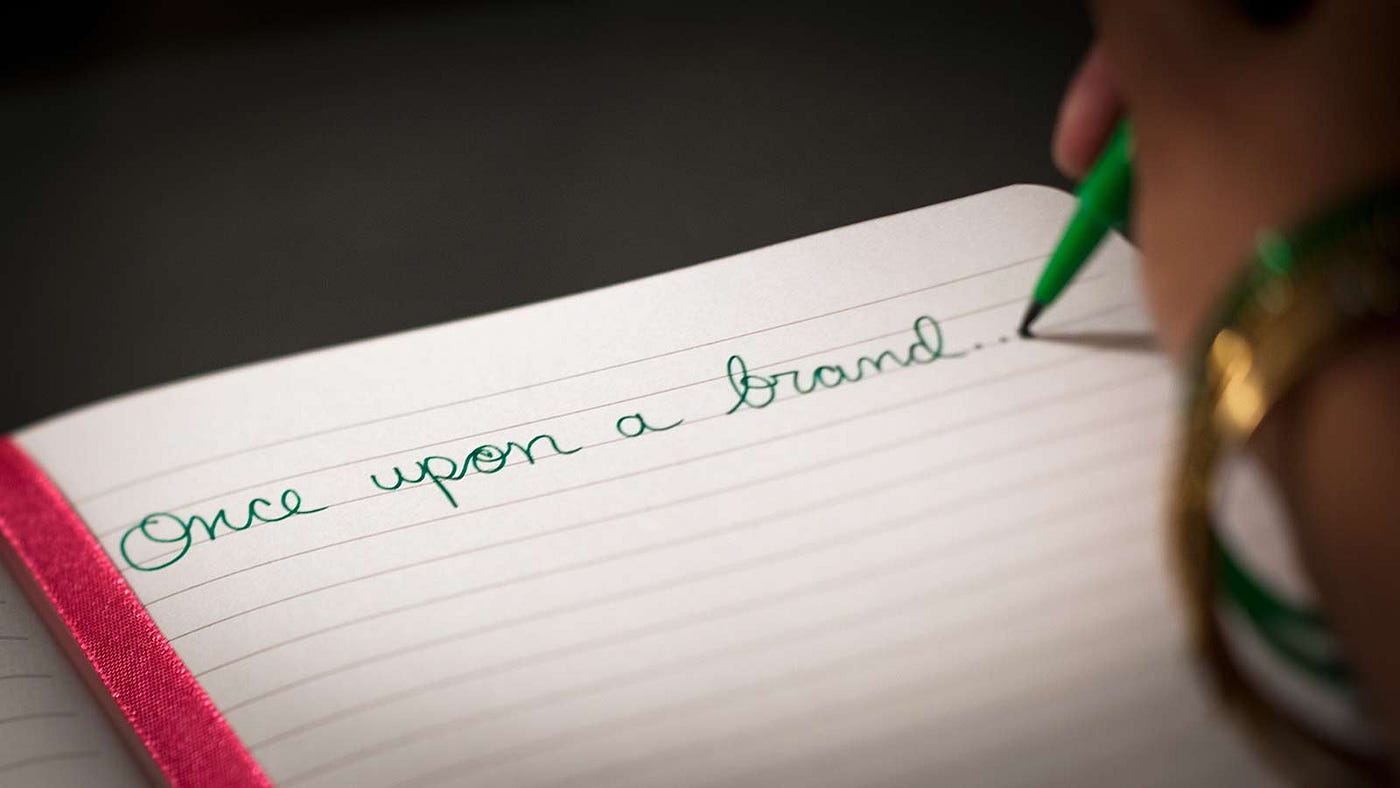 Once upon a brand...